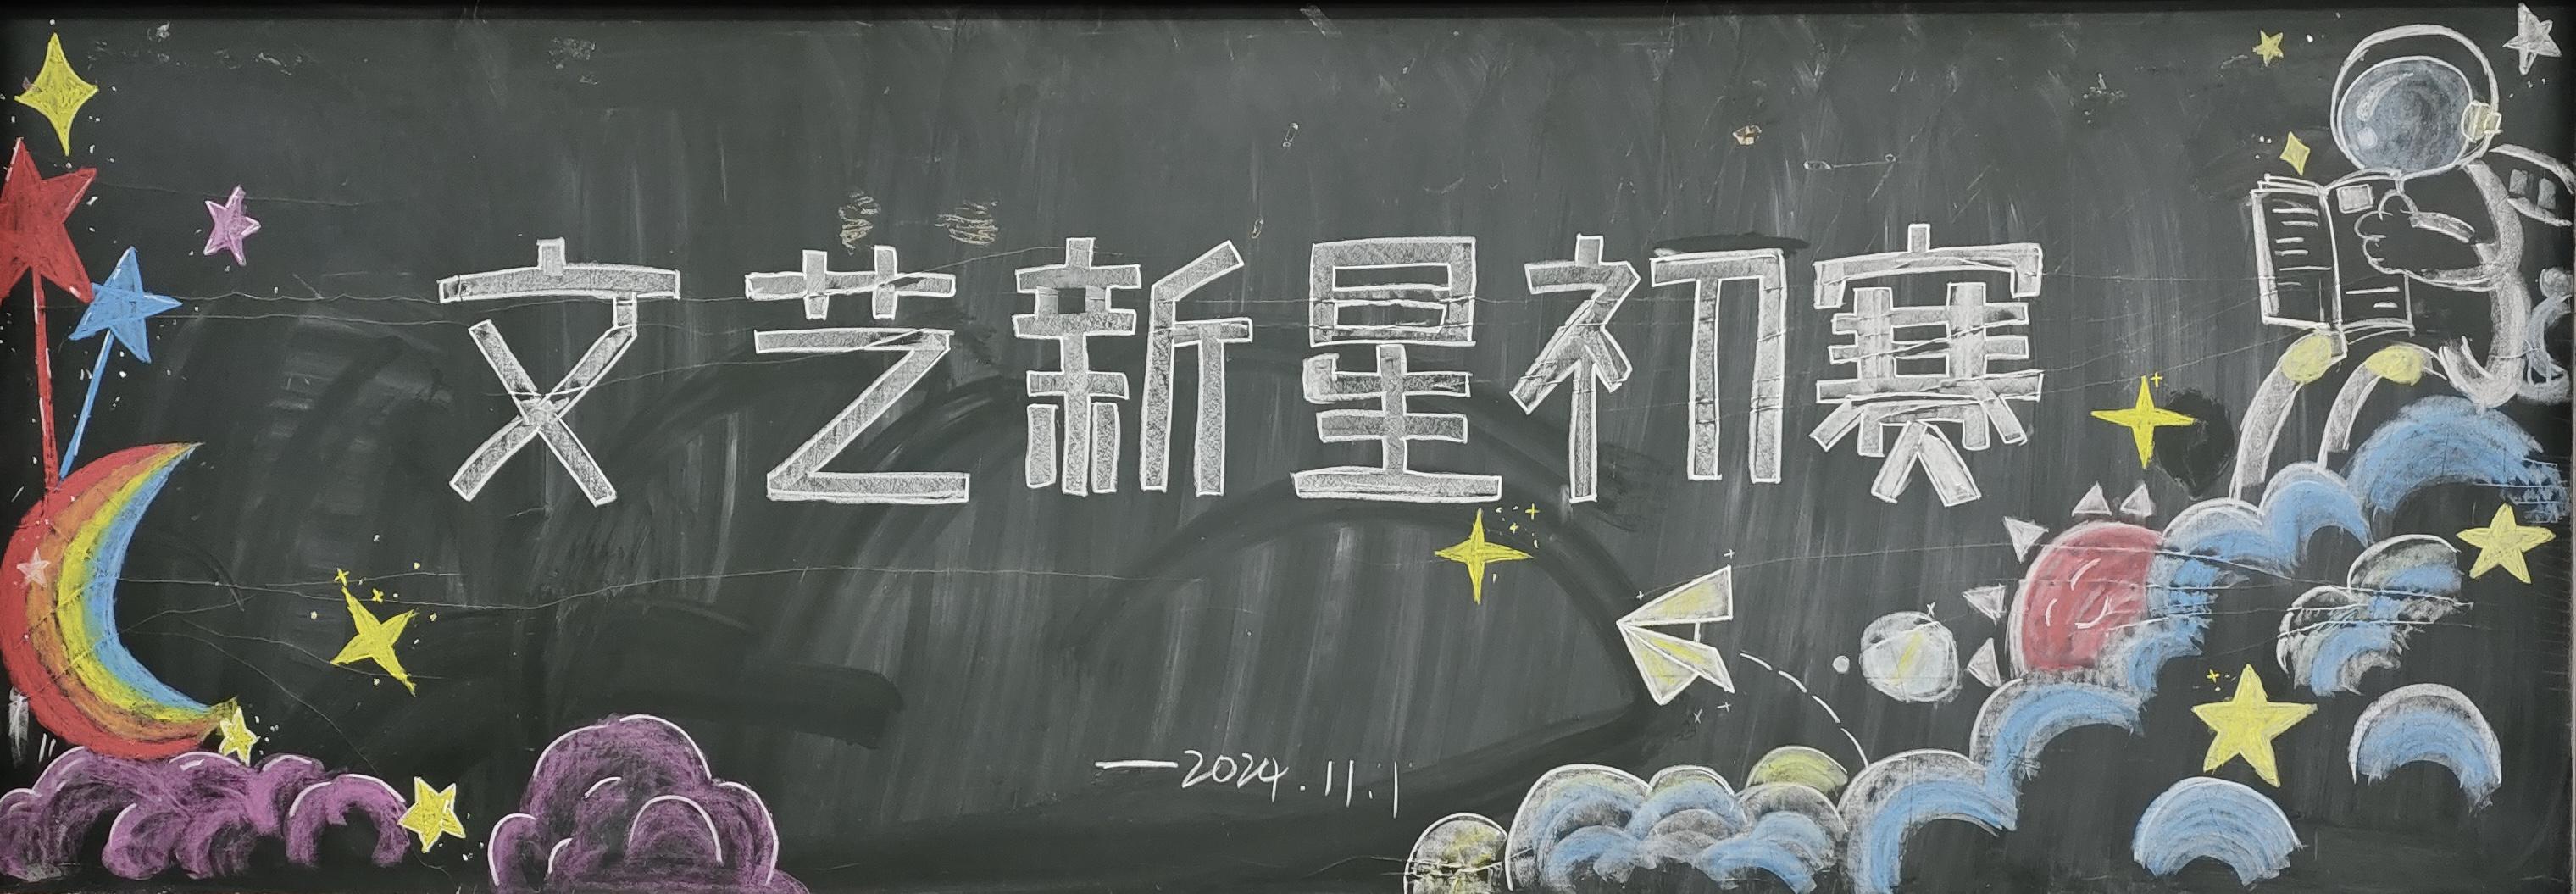 文艺新星初赛
—2024.11.1